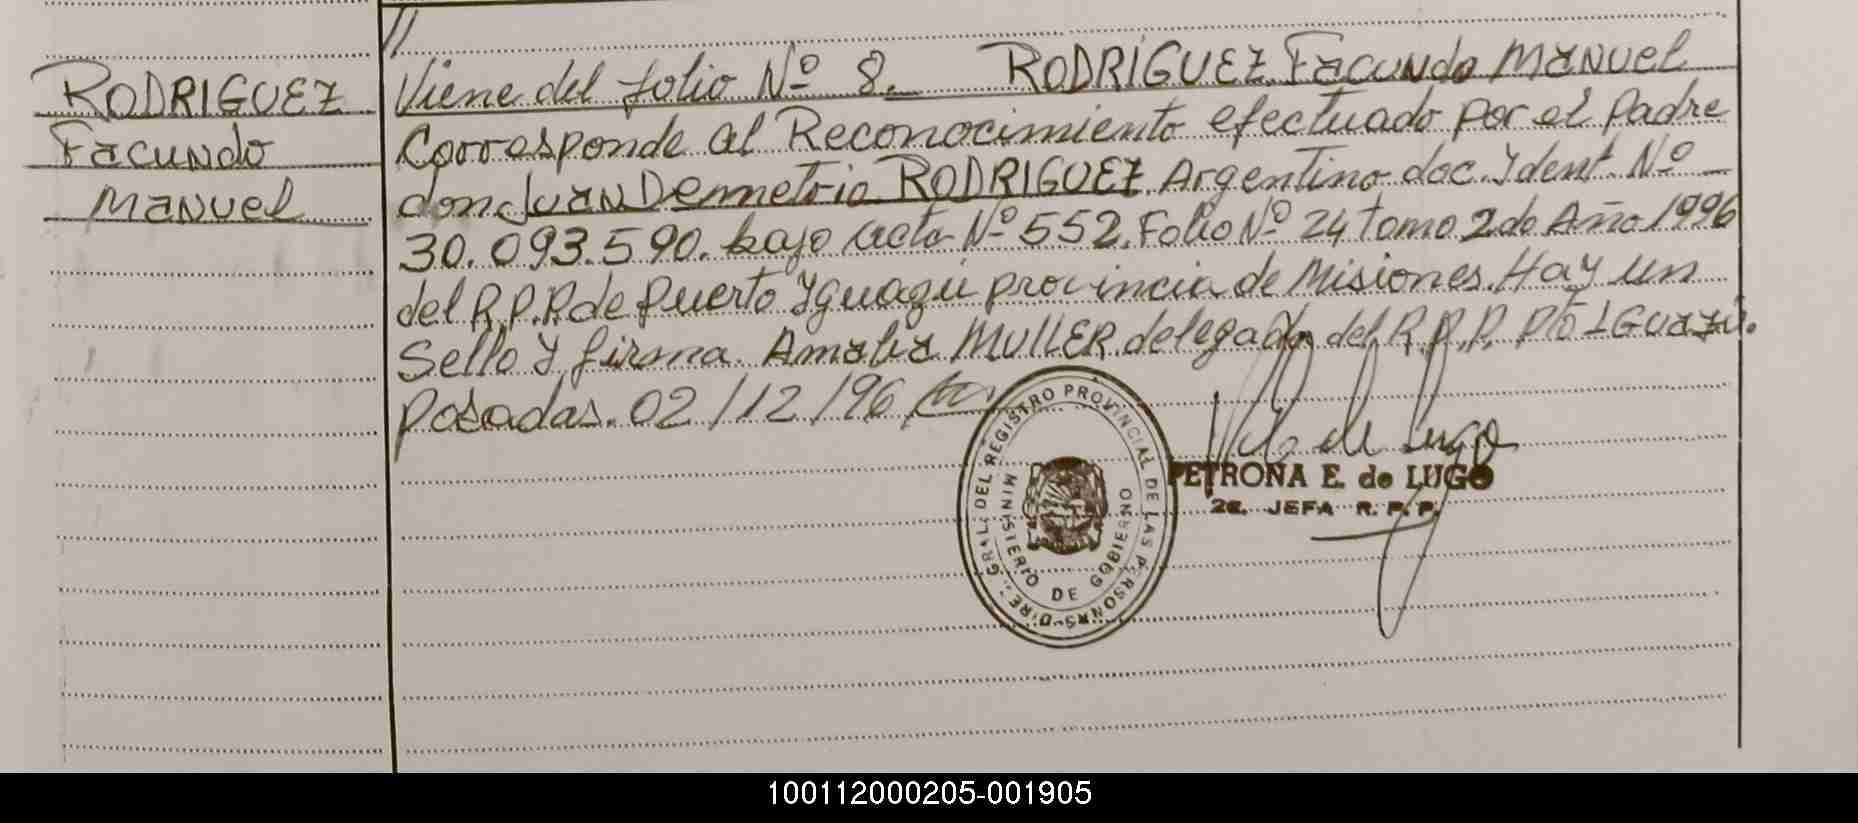 RODRIGUEZ
Facundo
Manuel
//
Viene del folio Nº 8. RODRIGUEZ Facundo Manuel
Corresponde al Reconocimiento efectuado por el padre
don Juan Demetrio RODRIGUEZ Argentino doc. Ydent. Nº
30.093.590. bajo acta Nº 552. Folio Nº 24 tomo 2do Año 1996
del R.P.P. de Puerto Yguazú provincia de Misiones. Hay un
Sello y firma. Amalia MULLER. delegada del R.P.P. Pto IGuazú.
Posadas. 02/12/96
DIRE. GRAL. DEL REGISTRO PROVINCIAL DE LAS PERSONAS
MINISTERIO DE GOBIERNO
de Lugo
PETRONA E. de LUGO
2a. JEFA R. P. P.
100112000205-001905